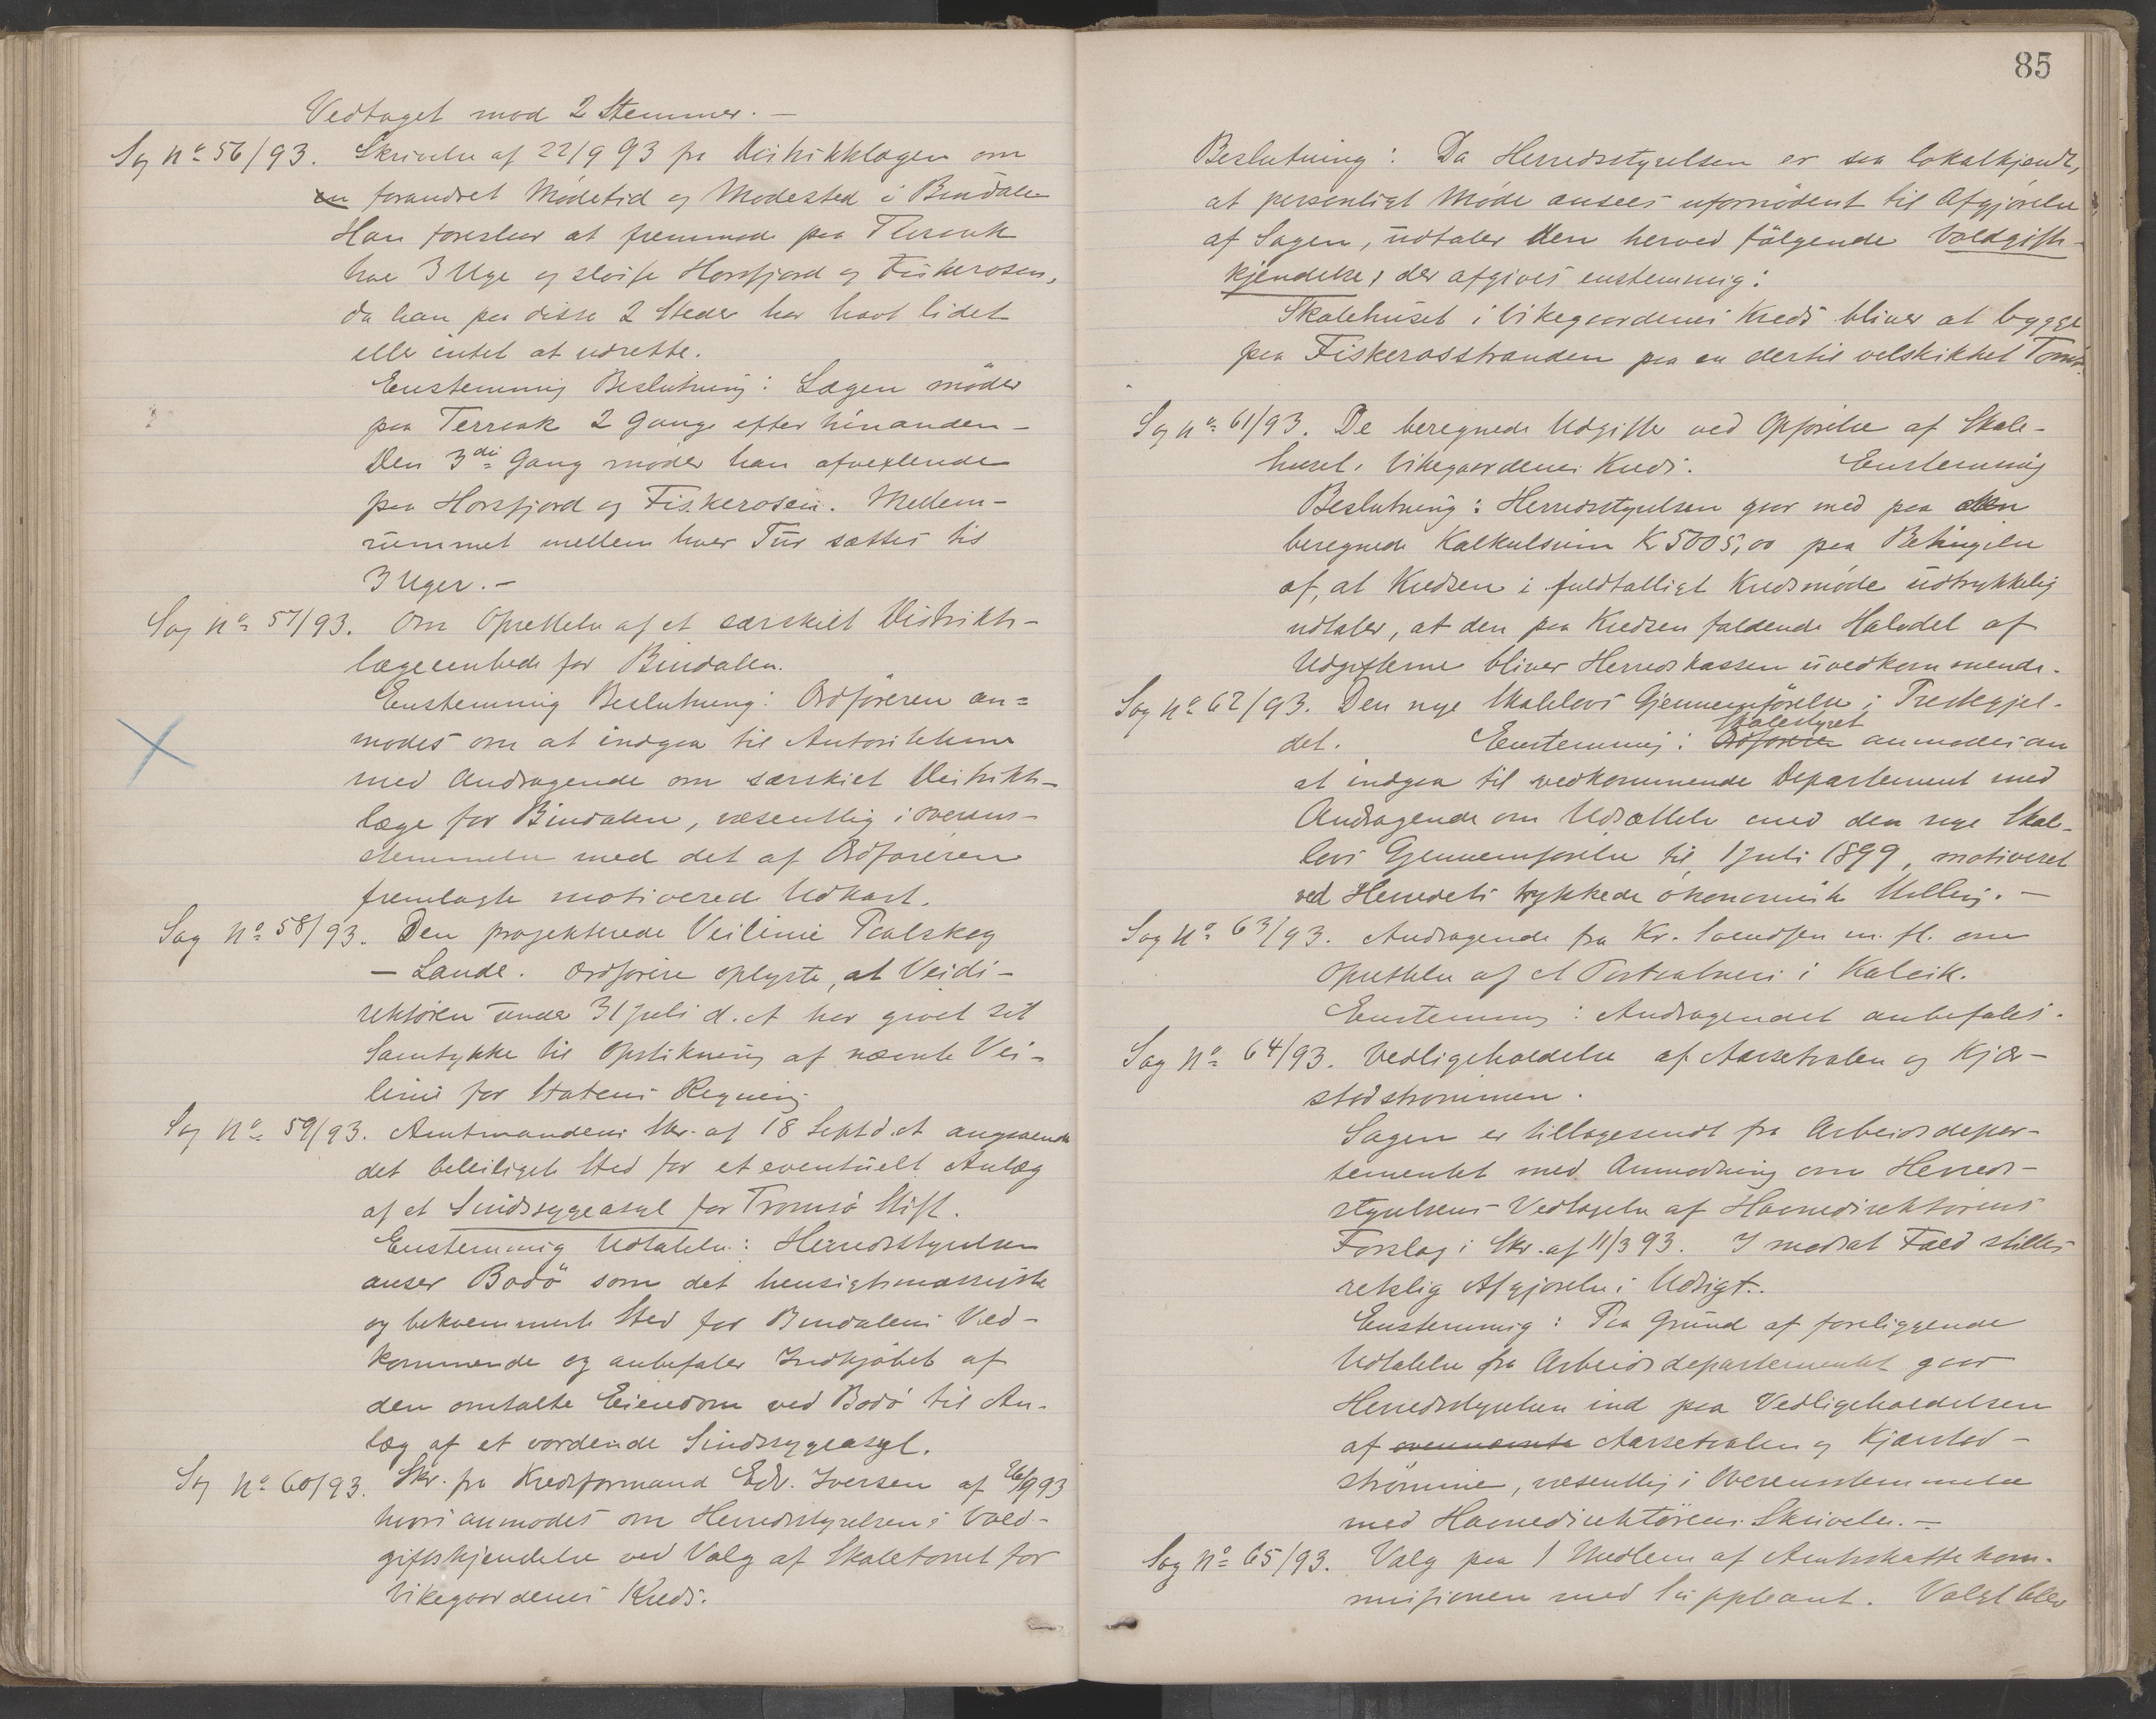 Vedtaget mod 2 Stemmer. —
Sag No 56/93. Skrivelse af 22/9 93 fra Distriktslægen om
en forandret Mødetid og Mødested i Bindalen
Han foreslaar at fremmøde paa Terraak
hver 3 Uge og sløife Horsfjord og Fiskerosen,
da han paa disse 2 Steder har havt lidet
eller intet at udrette.
Enstemmig Beslutning: Lægen møder
paa Terraak 2 Gange efter hinanden –
Den 3die Gang møder han afvexlende
paa Horsfjord og Fiskerosen. Mellem-
rummet mellem hver Tur sættes til
3 Uger. –
Sag No 57/93. Om Oprettelse af et særskilt Distrikts-
lægeembede for Bindalen.
Enstemmig Beslutning: Ordføreren an=
modes om at indgaa til Autoriteterne
med Andragende om særskilt Distrikts-
læge for Bindalen, væsentlig i overens-
stemmelse med det af Ordføreren
fremlagte motiverede Udkast.
Sag No 58/93. Den projekterede Veilinie Paalskog
– Lande. Ordføreren oplyste, at Veidi-
rektøren under 31 Juli d. A har givet sit
Samtykke til Opstikning af nævnte Vei-
linie for Statens Regning
Sag No 59/93. Amtmandens Skr. af 18 Sept d. A angaaende
det beleiligste Sted for et eventuelt Anlæg
af et Sindssygeasyl for Tromsø Stift.
Enstemmig Udtalelse: Herredsstyrelsen
anser Bodø som det hensigtsmæssigste
og bekvemmeste Sted for Bindalens Ved-
kommende og anbefaler Indkjøbet af
den omtalte Eiendom ved Bodø til An-
læg af et vordende Sindssygeasyl.
Sag No 60/93. Skr. fra Kredsformand Edv. Iversen af 26/9 93
hvori anmodes om Herredsstyrelsens Vold-
giftskjendelse ved Valg af Skoletomt for
Vikegaardenes Kreds.
85
Beslutning: Da Herredsstyrelsen er saa lokalkjendt,
at personligt Møde ansees ufornødent til Afgjørelse
af Sagen, udtaler den herved følgende Voldgifts-
kjendelse, der afgives enstemmig:
Skolehuset i Vikegaardenes Kreds bliver at bygge
paa Fiskerosstranden paa en dertil velskikket Tomt.
Sag No 61/93. De beregnede Udgifter ved Opførelse af Skole-
huset i Vikegaardenes Kreds. Enstemmig
Beslutning: Herredsstyrelsen gaar med paa den
beregnede Kalkulsum Kr 5005,00 paa Betingelse
af, at Kredsen i fuldtalligt Kredsmøde udtrykkelig
udtaler, at den paa Kredsen faldende Halvdel af
Udgifterne bliver Herredskassen uvedkommende.
Sag No 62/93. Den nye Skolelovs Gjennemførelse i Præstegjel-
Skolestyret
det. Enstemmig: Ordføreren anmodes om
at indgaa til vedkommende Departement med
Andragende om Udsættelse med den nye Skole-
lovs Gjennemførelse til 1 Juli 1899, motiveret
ved Herredets trykkede økonomiske Stilling. –
Sag No 63/93. Andragende fra Kr. Svendsen m. fl. om
Oprettelse af et Postaabneri i Kalvik.
Enstemmig: Andragendet anbefales.
Sag No 64/93. Vedligeholdelse af Aarsetvalen og Kjær-
stadstrømmen.
Sagen er tilbagesendt fra Arbeidsdepar-
tementet med Anmodning om Herreds-
styrelsens Vedtagelse af Havnedirektørens
Forslag i Skr. af 11/3 93. I modsat Fald stilles
retslig Afgjørelse i Udsigt.
Enstemmig: Paa Grund af foreliggende
Udtalelse fra Arbeidsdepartementet gaar
Herredsstyrelsen ind paa Vedligeholdelsen
af ovennævnte Aarsetvalen og Kjærstad-
strømme, væsentlig i Overensstemmelse
med Havnedirektørens Skrivelse. –
Sag No 65/93. Valg paa 1 Medlem af Amtsskattekom-
missionen med Suppleant. Valgt blev